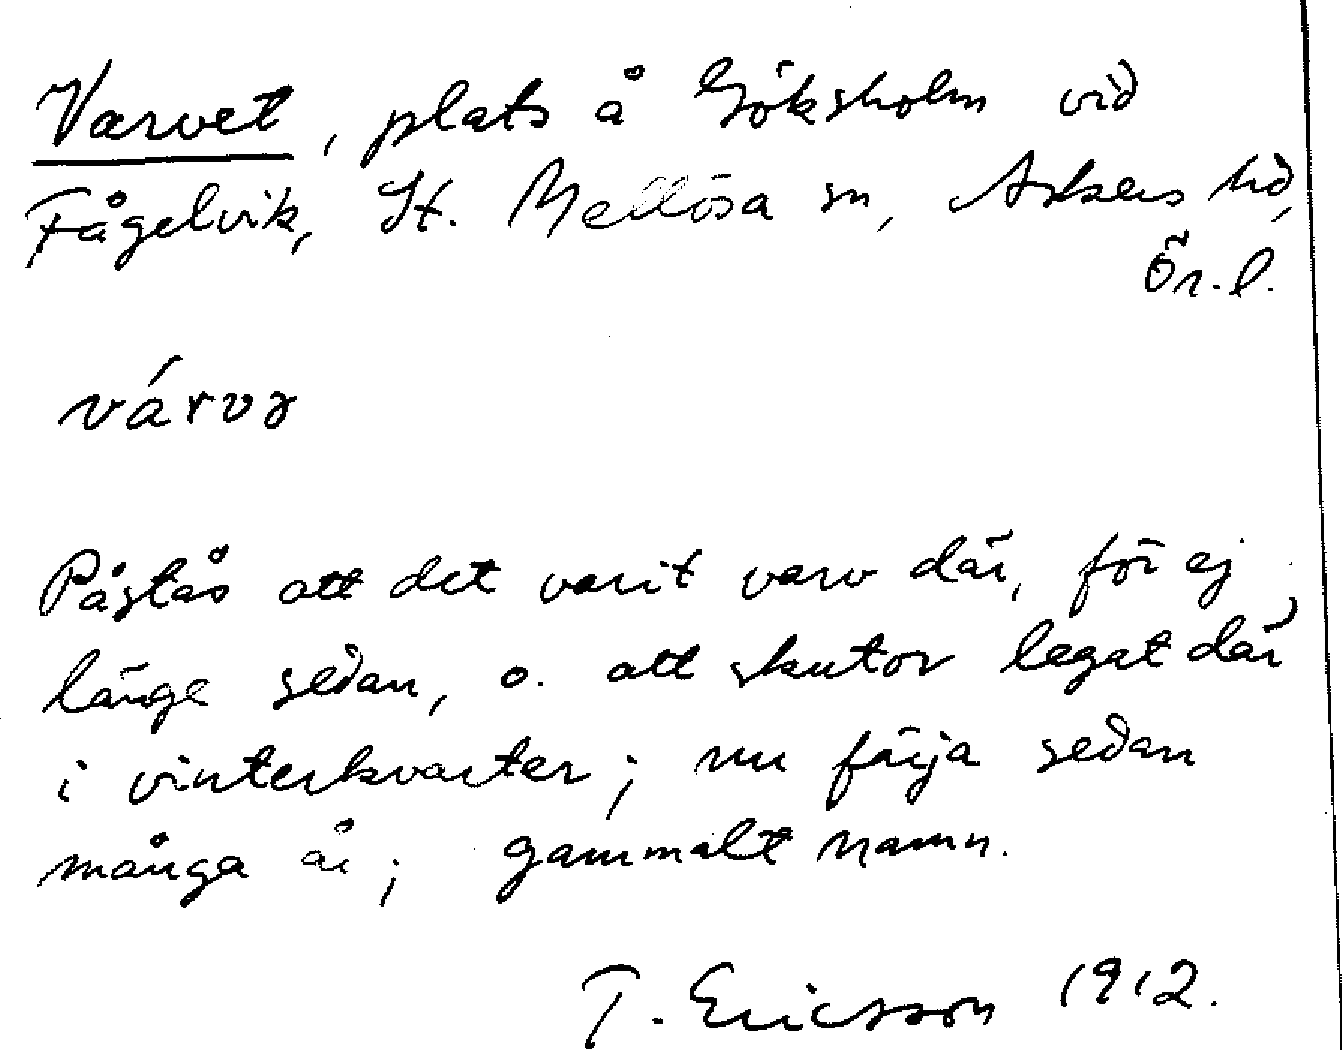 Varvet, plats å Göksholm vid
Fågelvik, St. Mellösa sn, Askers hd,
Ör. l.
várvə
Påstås att det varit varv där, för ej
länge sedan, o. att skutor legat där
i vinterkvarter; nu färja sedan
många år; gammalt namn.
T. Ericsson 1912.